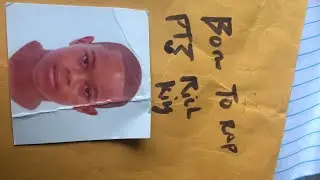 Born TO RAP
PT3 Rich
King